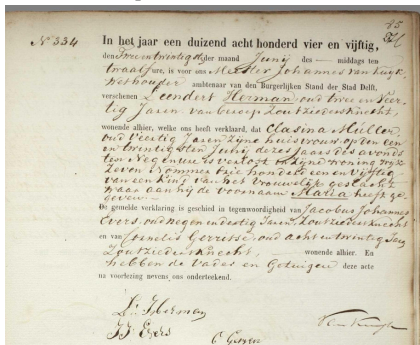 75
N° 334
In het jaar een duizend acht honderd vier en vijftig,
den Twee en twintigste der maand Junij des — middags ten
twaalf ure, is voor ons Meester Johannes van Kuyk,
Wethouder ambtenaar van den Burgerlijken Stand der Stad Delft,
verschenen Leendert Herman, oud twee en Veer-
tig Jaren, van beroep Zoutziedersknecht,
wonende alhier, welke ons heeft verklaard, dat Clasina Müller,
oud Veertig Jaren, zijne huisvrouw, op den een
en twintigsten Junij dezes jaars des avonds
ten Negen ure is verlost ten zijne woning wijk
Zeven Nommer drie honderd een en vijftig
van een Kind van het Vrouwelijk geslacht
waar aan hij de voornaam Maria heeft ge-
geven —
De gemelde verklaring is geschied in tegenwoordigheid van Jacobus Johannes
Evers, oud negen en dertig Jaren, Zoutziedersknecht
en van Cornelis Gerritse, oud acht en twintig Jaren
Zoutziedersknecht, — wonende alhier. En
hebben de Vader en Getuigen deze acte
na voorlezing nevens ons onderteekend.
L. Herman
JJ Evers
C Gerritse
Van Kuyk